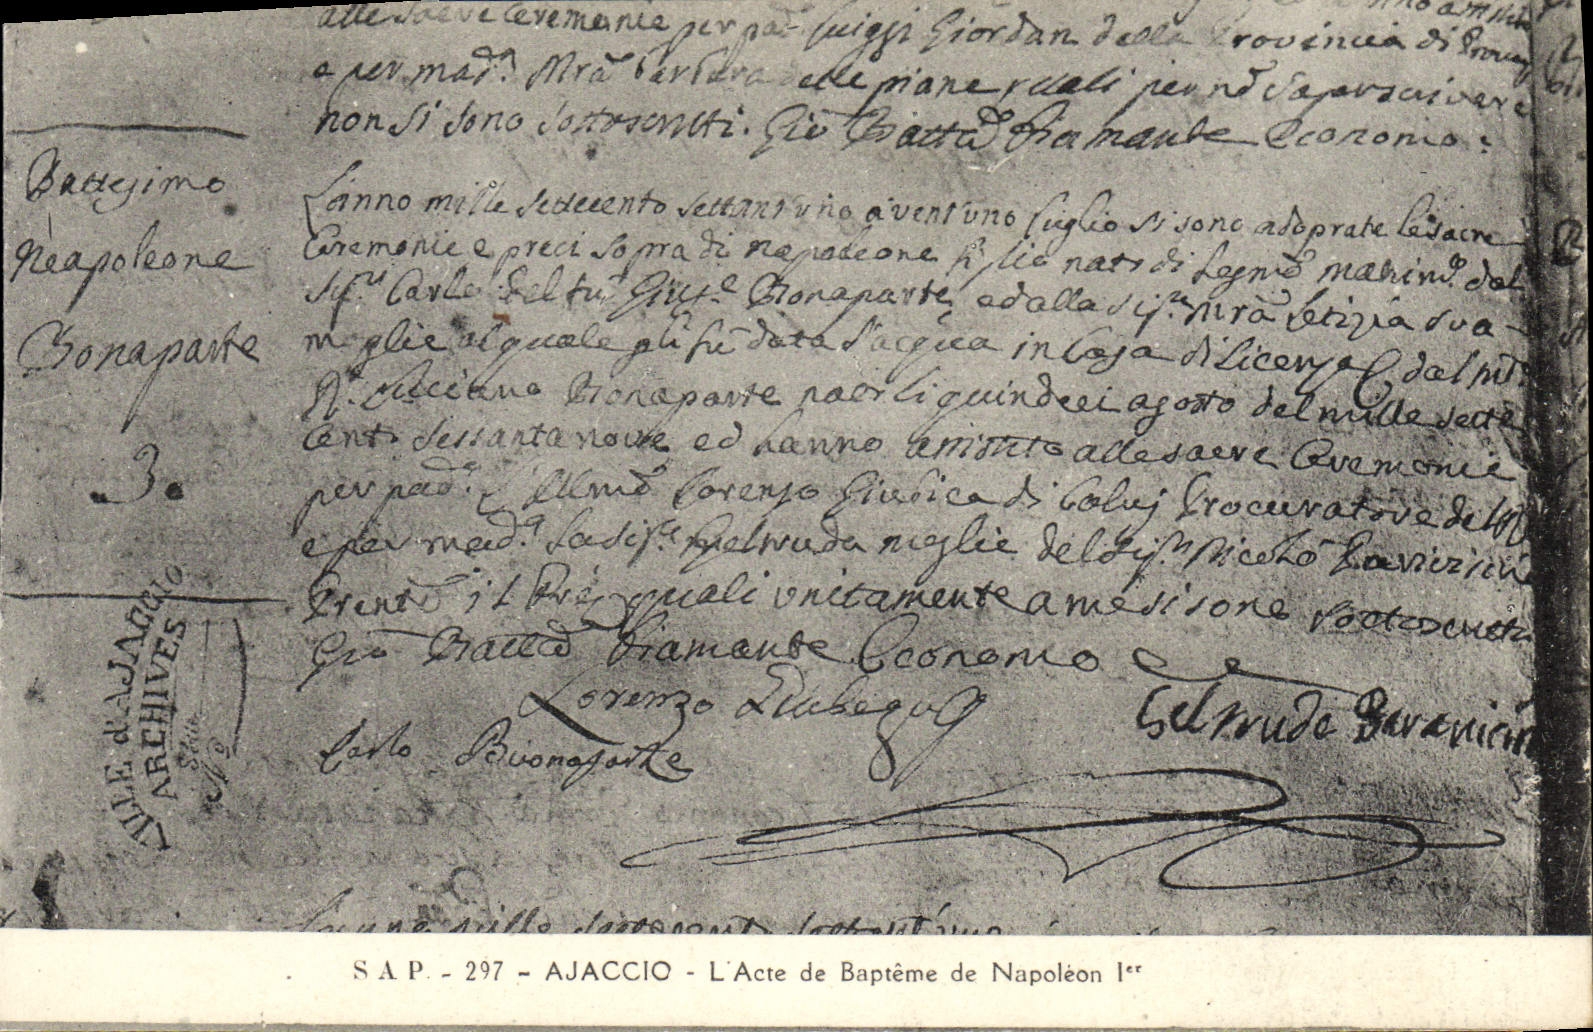 alle sacre Ceremonie per pad. Luiggi Giordan della Provincia di
e per mad.a Mra Barbara delle piane quali per nõ saper scrivere
non si sono sottoscritti. Gio Batta Diamante Economo:
Battesimo
Neapoleone
Bonaparte
3.
L'anno mille settecento settant'uno a vent'uno luglio si sono adoprate le sacre
Ceremonie e preci sopra di napoleone figlio nato di legmõ matrimo. dal
Sig.r Carlo del fu Gius.e Bonaparte, ed alla Sig.ra Mra Letizia sua
moglie al quale gli fu data l'acqua in Casa di licenza dal
R. Luciano Bonaparte nato li quindeci agosto del mille sette
cento sessanta nove ed hanno assistito alle sacre Ceremonie
per pad. l'Illmõ Lorenzo Giubica di Calvj Procuratore del
e per mad.a la Sig.ra Geltruda moglie del Sig.r Nicolò
Presente il Pre quali unitamente a me si sono sottoscritti
Gio Batta Diamante Economo
Lorenzo Giubega
Geltruda
Carlo Buonaparte
VILLE d'AJACCIO
ARCHIVES
Série
No
L'anno mille settecento settant'uno
S A P. - 297 - AJACCIO - L'Acte de Baptême de Napoléon Ier